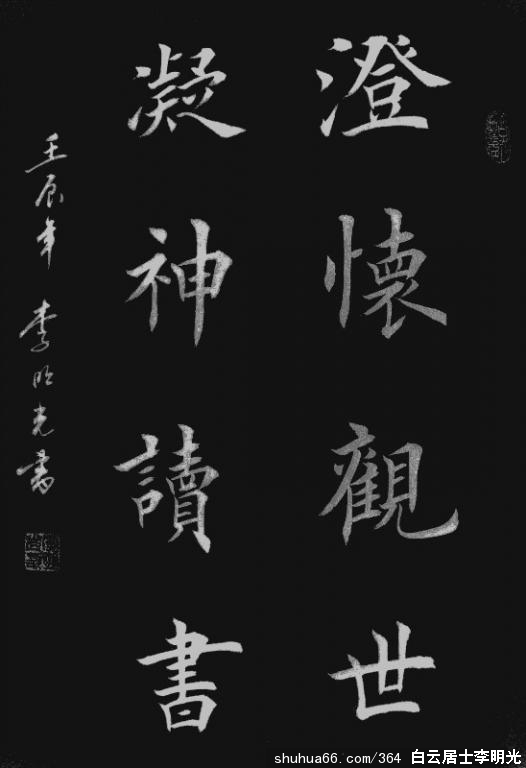 澄懷觀世
凝神讀書
壬辰年 李明光書
shuhua66.com/364 白云居士李明光